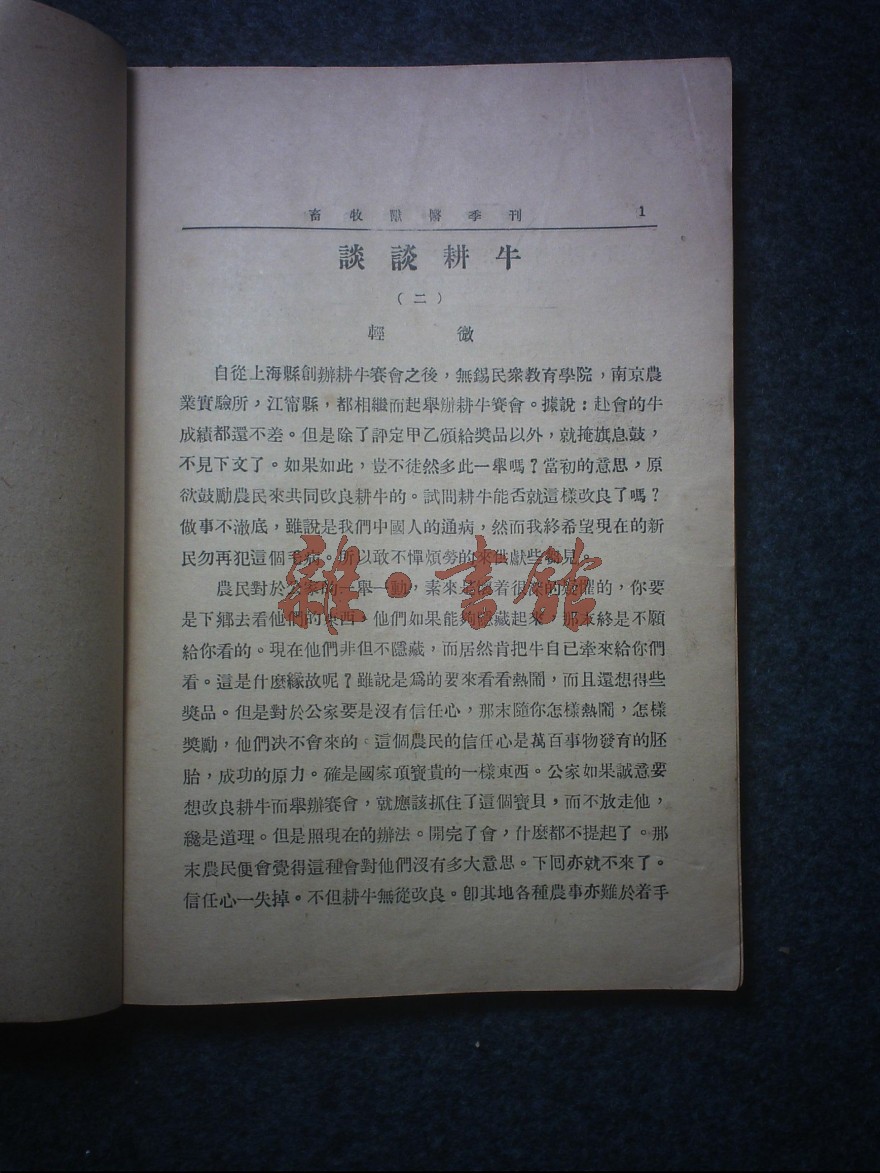 畜牧獸醫季刊 1
談談耕牛
（二）
輕微
自從上海縣創辦耕牛賽會之後，無錫民衆教育學院，南京農
業實驗所，江甯縣，都相繼而起舉辦耕牛賽會。據說：赴會的牛
成績都還不差。但是除了評定甲乙頒給獎品以外，就掩旗息鼓，
不見下文了。如果如此，豈不徒然多此一舉嗎？當初的意思，原
欲鼓勵農民來共同改良耕牛的。試問耕牛能否就這樣改良了嗎？
做事不澈底，雖說是我們中國人的通病，然而我終希望現在的新
民勿再犯這個毛病。所以敢不憚煩勞的來供獻些芻見。
農民對於公家的一舉一動，素來是着很深的疑懼的，你要
是下鄉去看他們的東西，他們如果能夠隱藏起來，那末終是不願
給你看的。現在他們非但不隱藏，而居然肯把牛自已牽來給你們
看。這是什麼緣故呢？雖說是爲的要來看看熱鬧，而且還想得些
獎品。但是對於公家要是沒有信任心，那末隨你怎樣熱鬧，怎樣
獎勵，他們决不會來的。這個農民的信任心是萬百事物發育的胚
胎，成功的原力。確是國家頂寶貴的一樣東西。公家如果誠意要
想改良耕牛而舉辦賽會，就應該抓住了這個寶貝，而不放走他，
纔是道理。但是照現在的辦法。開完了會，什麼都不提起了。那
末農民便會覺得這種會對他們沒有多大意思。下回亦就不來了。
信任心一失掉。不但耕牛無從改良。卽其地各種農事亦難於着手
雜·書館